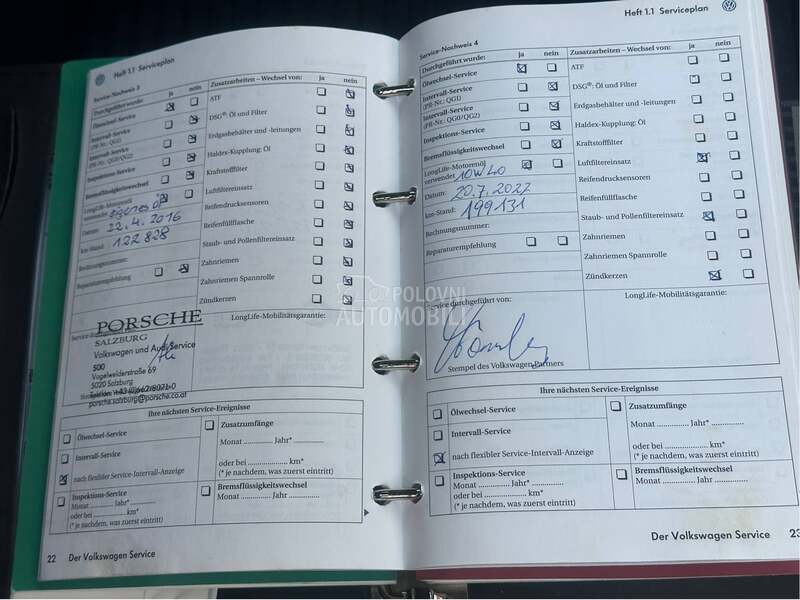 Heft 1.1 Serviceplan
Service-Nachweis 3
Durchgeführt wurde: ja nein
Ölwechsel-Service
Intervall-Service
(PR-Nr.: QG1)
Intervall-Service
(PR-Nr.: QG0/QG2)
Inspektions-Service
Bremsflüssigkeitswechsel
LongLife-Motorenöl
verwendet:
Datum: 22.4.2016
km-Stand: 122 828
Rechnungsnummer:
Reparaturempfehlung
Zusatzarbeiten – Wechsel von: ja nein
ATF
DSG®: Öl und Filter
Erdgasbehälter und -leitungen
Haldex-Kupplung: Öl
Kraftstofffilter
Luftfiltereinsatz
Reifendrucksensoren
Reifenfüllflasche
Staub- und Pollenfiltereinsatz
Zahnriemen
Zahnriemen Spannrolle
Zündkerzen
LongLife-Mobilitätsgarantie:
PORSCHE
SALZBURG
Volkswagen und Audi Service
500
Vogelweiderstraße 69
5020 Salzburg
porsche.salzburg@porsche.co.at
Ihre nächsten Service-Ereignisse
Ölwechsel-Service
Intervall-Service
nach flexibler Service-Intervall-Anzeige
Inspektions-Service
Monat ............ Jahr* ............
oder bei ............ km*
(* je nachdem, was zuerst eintritt)
Zusatzumfänge
Monat ............ Jahr* ............
oder bei ............ km*
(* je nachdem, was zuerst eintritt)
Bremsflüssigkeitswechsel
Monat ............ Jahr ............
22 Der Volkswagen Service
Heft 1.1 Serviceplan
Service-Nachweis 4
Durchgeführt wurde: ja nein
Ölwechsel-Service
Intervall-Service
(PR-Nr.: QG1)
Intervall-Service
(PR-Nr.: QG0/QG2)
Inspektions-Service
Bremsflüssigkeitswechsel
LongLife-Motorenöl
verwendet: 10W40
Datum: 20.7.2022
km-Stand: 199131
Rechnungsnummer:
Reparaturempfehlung
Zusatzarbeiten – Wechsel von: ja nein
ATF
DSG®: Öl und Filter
Erdgasbehälter und -leitungen
Haldex-Kupplung: Öl
Kraftstofffilter
Luftfiltereinsatz
Reifendrucksensoren
Reifenfüllflasche
Staub- und Pollenfiltereinsatz
Zahnriemen
Zahnriemen Spannrolle
Zündkerzen
Service durchgeführt von:
LongLife-Mobilitätsgarantie:
Stempel des Volkswagen Partners
Ihre nächsten Service-Ereignisse
Ölwechsel-Service
Intervall-Service
nach flexibler Service-Intervall-Anzeige
Inspektions-Service
Monat ............ Jahr* ............
oder bei ............ km*
(* je nachdem, was zuerst eintritt)
Zusatzumfänge
Monat ............ Jahr* ............
oder bei ............ km*
(* je nachdem, was zuerst eintritt)
Bremsflüssigkeitswechsel
Monat ............ Jahr ............
Der Volkswagen Service 23
POLOVNI
AUTOMOBILI